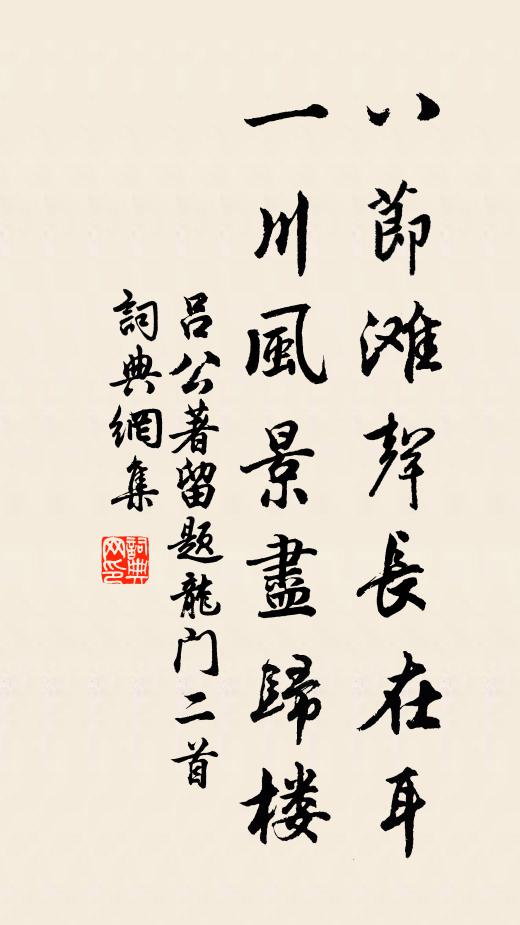 八節滩聲長在耳
一川風景盡歸楼
呂公著留题龍门二首
詞典網集
詞典网印